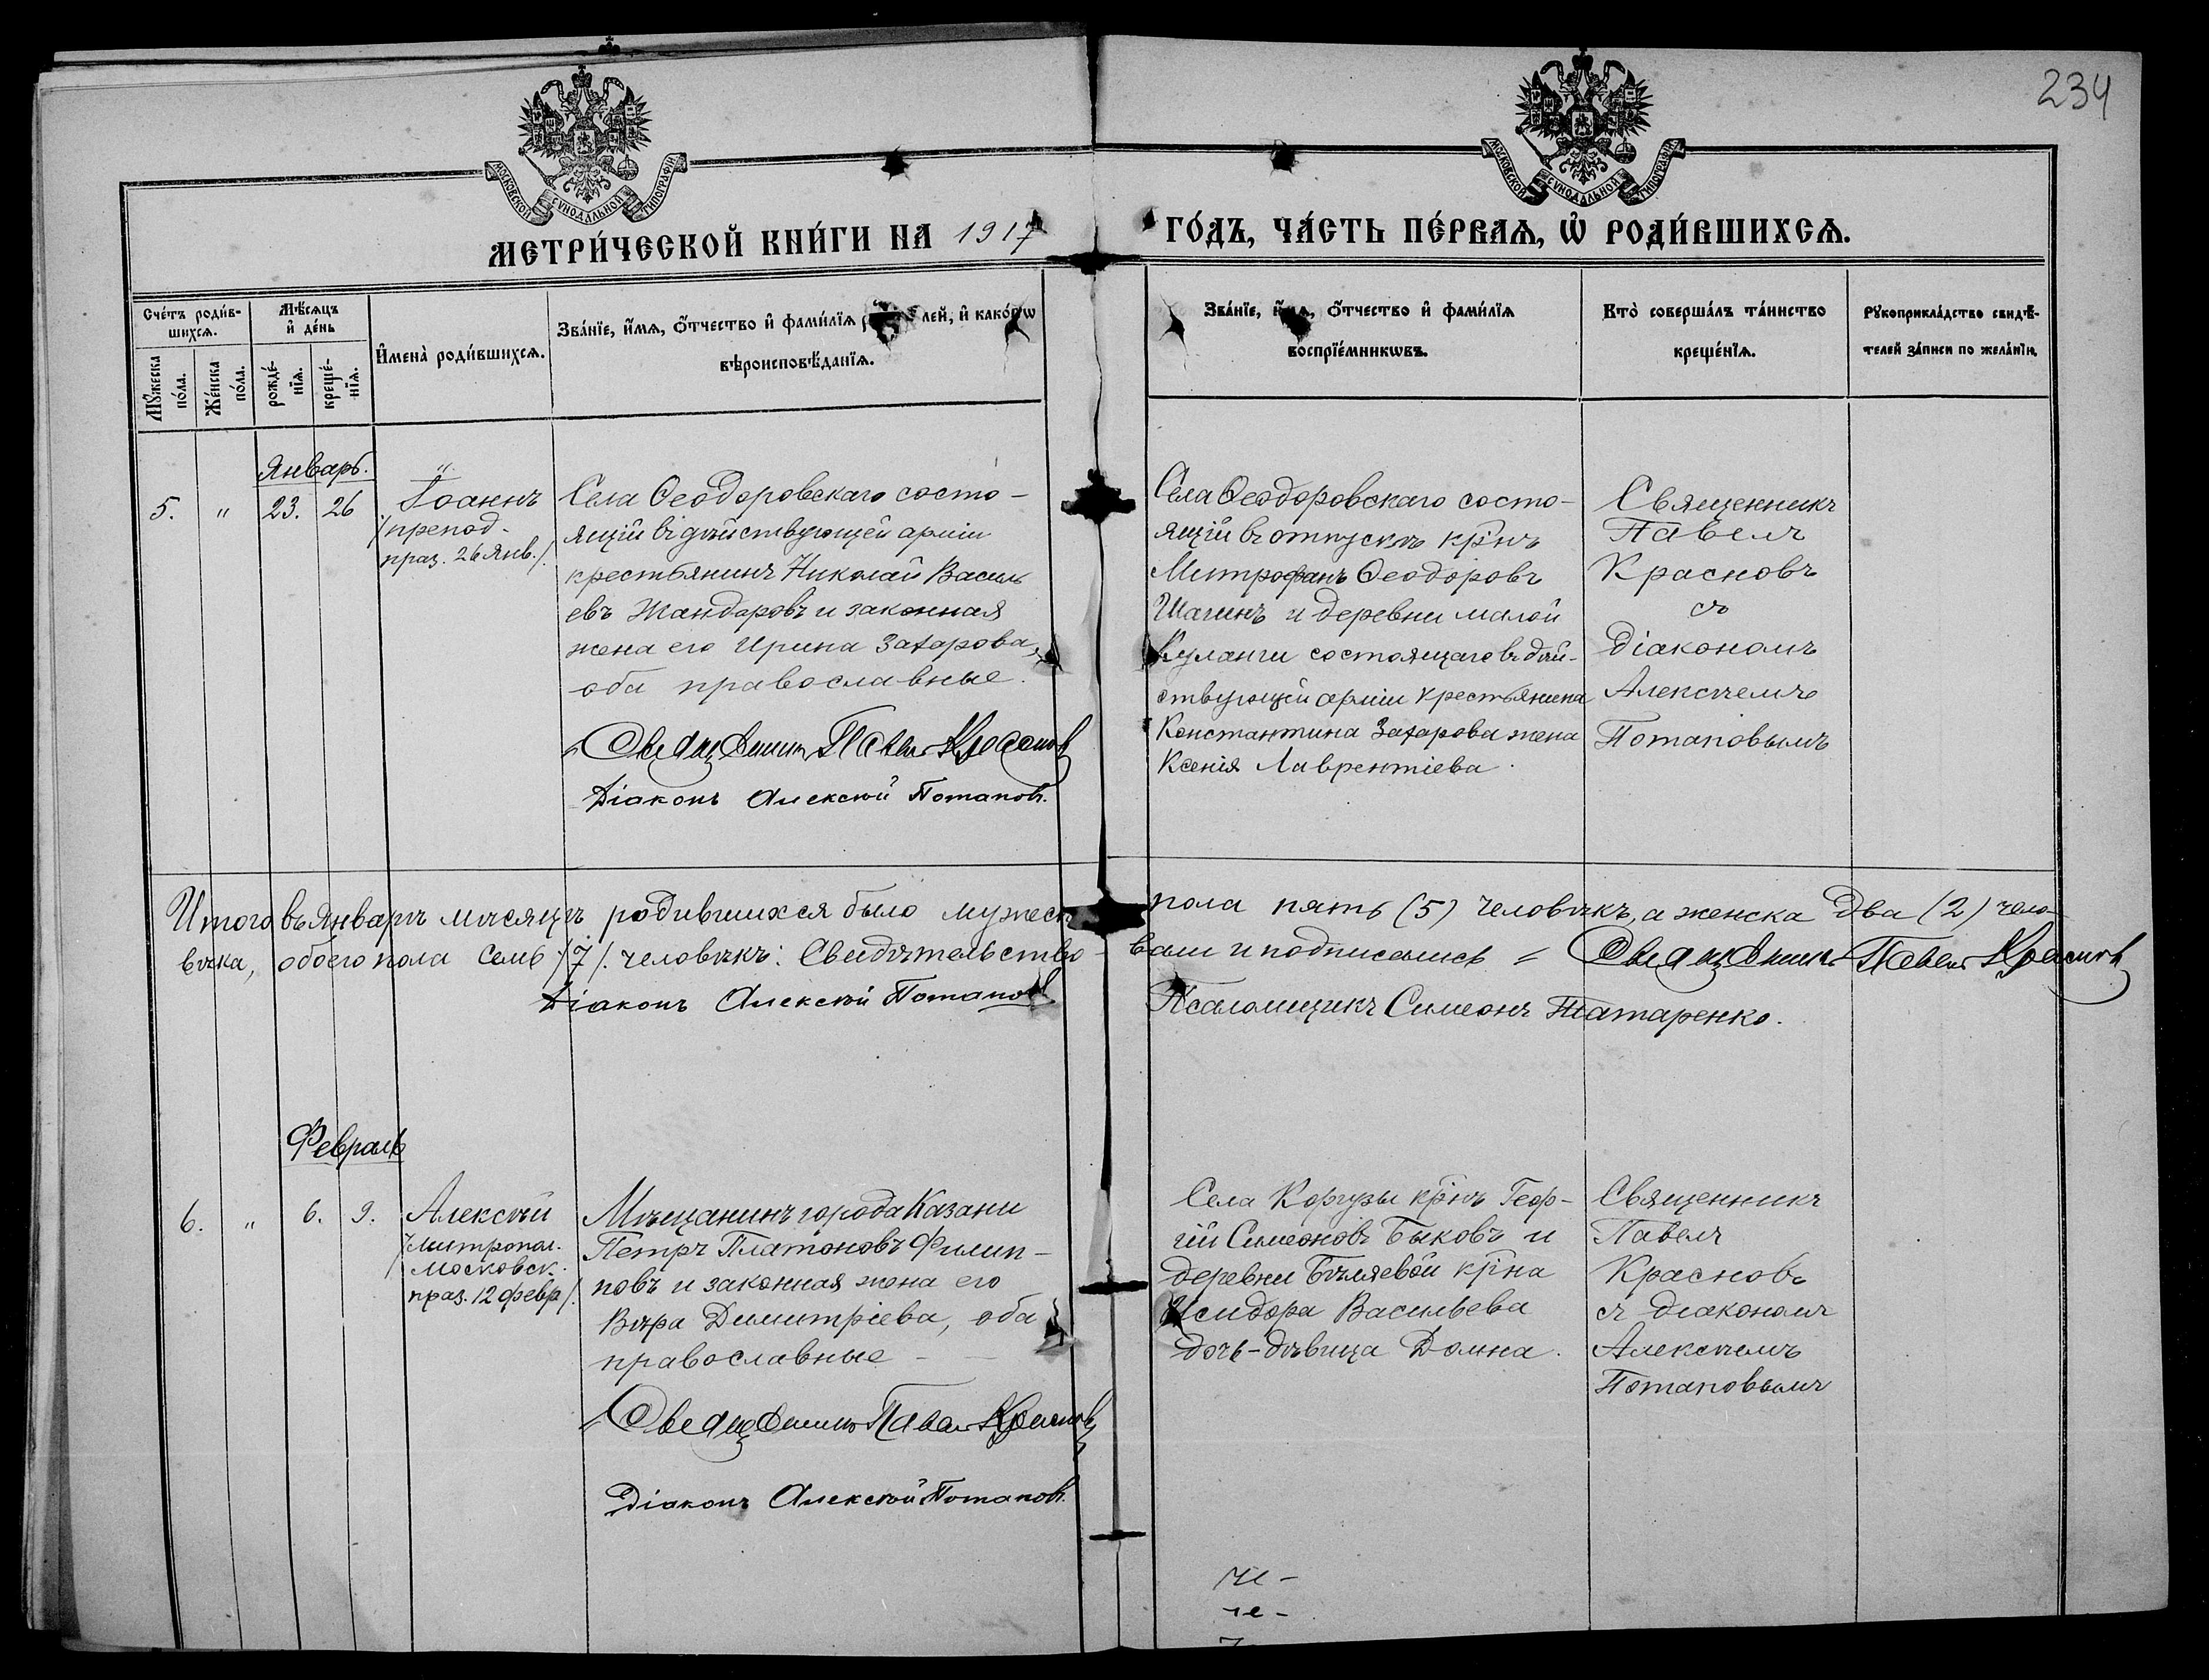 234
МОСКОВСКОЙ СѴНОДАЛЬНОЙ ТИПОГРАФІИ
МОСКОВСКОЙ СѴНОДАЛЬНОЙ ТИПОГРАФІИ
МЕТРИ́ЧЕСКОЙ КНИ́ГИ НА 1917 ГО́ДЪ, ЧА́СТЬ ПЕ́РВАѦ, Ѡ҆ РОДИ́ВШИХСѦ.
Сче́тъ роди́в-
шихсѧ.
Мꙋ́жеска по́ла.
Же́нска по́ла.
Мѣ́сѧцъ и҆ де́нь
рожде́-нїѧ.
креще́-нїѧ.
И҆мена̀ роди́вшихсѧ.
Зва́нїе, и҆́мѧ, ѻ҆́тчество и҆ фами́лїѧ лей, и҆ како́гѡ
вѣроисповѣ́данїѧ.
Зва́нїе, и҆́мѧ, ѻ҆́тчество и҆ фами́лїѧ
воспрїе́мникѡвъ.
Кто̀ соверша́лъ та́инство
креще́нїѧ.
Рꙋкоприкла́дство свидѣ́-
телей за́писи по жела́нїю.
Январь.
5. " 23. 26
"
Іоаннъ
/препод.
праз. 26 Янв./.
Села Ѳеодоровскаго состо-
ящій въ дѣйствующей арміи
крестьянинъ Николай Василь
евъ Жандаровъ и законная
жена его Ирина Захарова,
оба православные.
Священникъ Павелъ Красновъ
Діаконъ Алексѣй Потаповъ.
Села Ѳеодоровскаго состо-
ящій въ отпускѣ кр̃нъ
Митрофанъ Ѳеодоровъ
Шагинъ и деревни малой
Куланги состоящаго въ дѣй-
ствующей арміи крестьянина
Константина Захарова жена
Ксенія Лаврентіева.
Священникъ
Павелъ
Красновъ
съ
діакономъ
Алексѣемъ
Потаповымъ
Итого въ Январѣ мѣсяцѣ родившихся было мужеск пола пять (5) человѣкъ, а женска два (2) чело-
вѣка, обоего пола семь /7/. человѣкъ: Свидѣтельство-вали и подписались = Священникъ Павелъ Красновъ
Діаконъ Алексѣй Потаповъ Псаломщикъ Симеонъ Татаренко.
Февраль
6. " 6. 9.
Алексѣй
/митропол.
московск.
праз. 12 февр/.
Мѣщанинъ города Казани
Петръ Платоновъ Филип-
повъ и законная жена его
Вѣра Димитріева, оба
православные -
Священникъ Павелъ Красновъ
Діаконъ Алексѣй Потаповъ.
Села Коргузы кр̃нъ Геор-
гій Симеоновъ Быковъ и
деревни Бѣляевой кр̃на
Исидора Васильева
дочь-дѣвица Домна.
Священникъ
Павелъ
Красновъ
съ діакономъ
Алексѣемъ
Потаповымъ